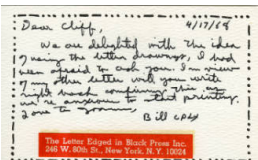 Dear Cliff, 4/17/68
We are delighted with the idea
of using the letter drawings, I had
been afraid to ask you. I'm
other letter will you write
right back confirming this, as
we're anxious to that printing.
Love to you,
Bill
The Letter Edged in Black Press Inc.
246 W. 80th St., New York, N.Y. 10024